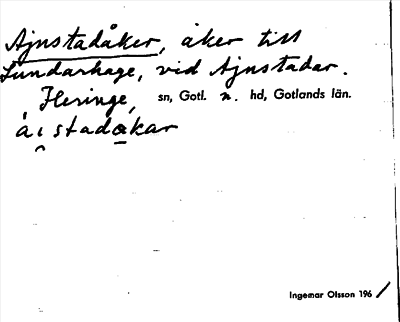 Ajnstadåker, åker till
Lundarhage, vid Ajnstadar.
Heringe, sn, Gotl. n. hd, Gotlands län.
ái̯stadakar
Ingemar Olsson 1961